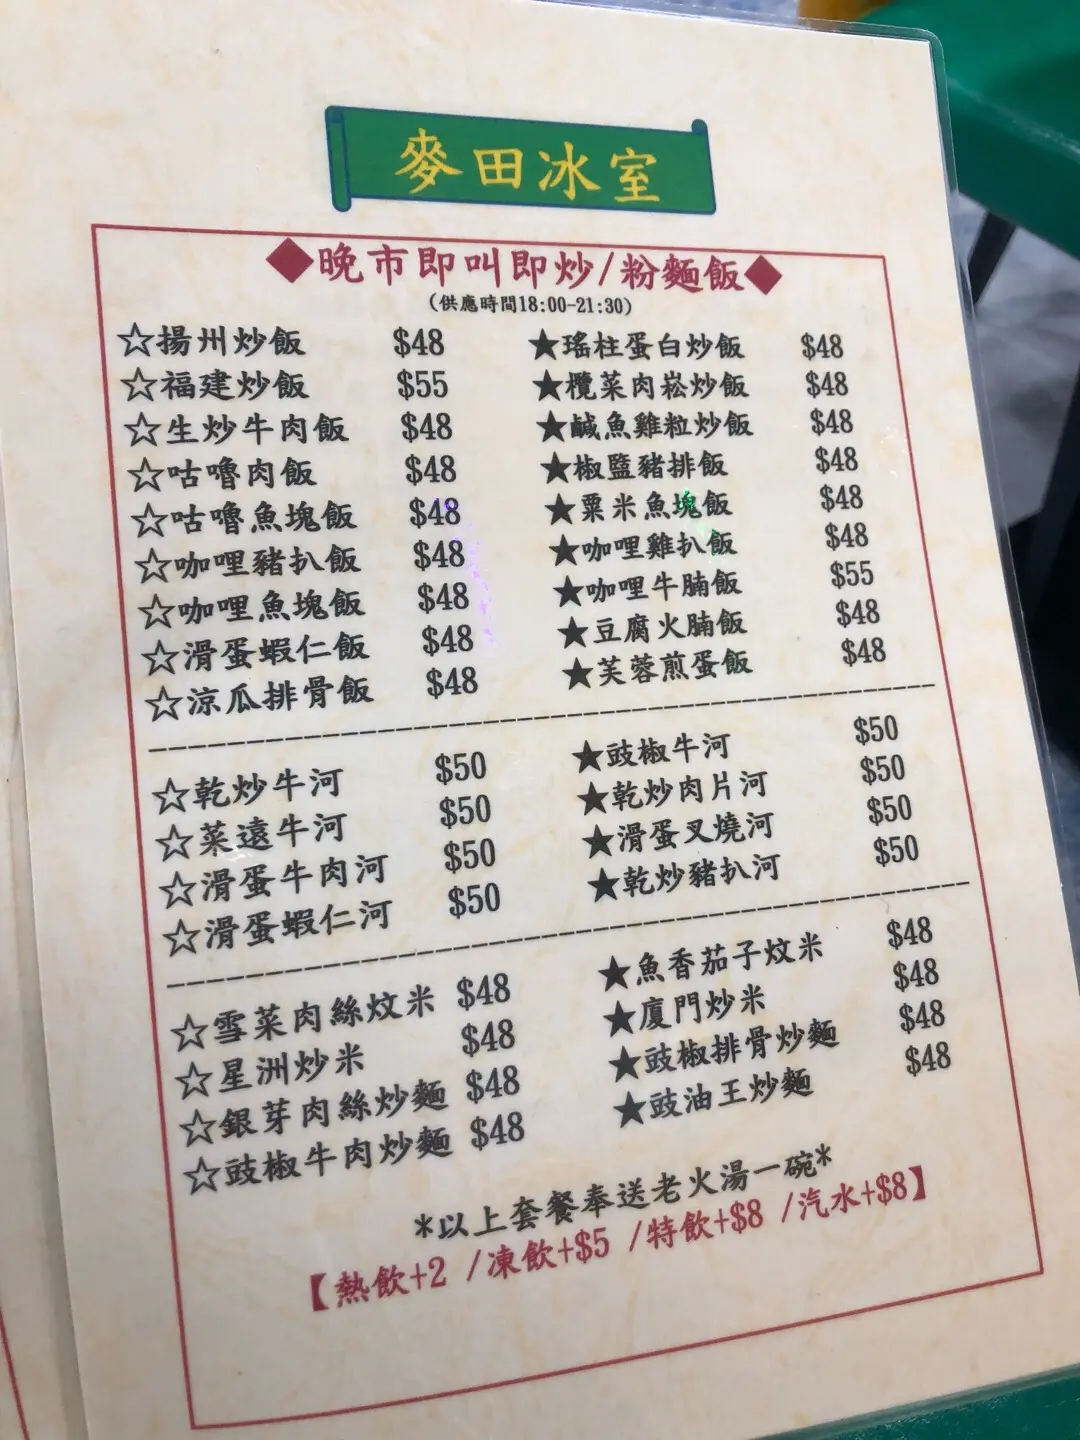 麥田冰室
◆晚市即叫即炒/粉麵飯◆
(供應時間18:00-21:30)
☆揚州炒飯 $48 ★瑤柱蛋白炒飯 $48
☆福建炒飯 $55 ★欖菜肉崧炒飯 $48
☆生炒牛肉飯 $48 ★鹹魚雞粒炒飯 $48
☆咕嚕肉飯 $48 ★椒鹽豬排飯 $48
☆咕嚕魚塊飯 $48 ★粟米魚塊飯 $48
☆咖哩豬扒飯 $48 ★咖哩雞扒飯 $48
☆咖哩魚塊飯 $48 ★咖哩牛腩飯 $55
☆滑蛋蝦仁飯 $48 ★豆腐火腩飯 $48
☆涼瓜排骨飯 $48 ★芙蓉煎蛋飯 $48
☆乾炒牛河 $50 ★豉椒牛河 $50
☆菜遠牛河 $50 ★乾炒肉片河 $50
☆滑蛋牛肉河 $50 ★滑蛋叉燒河 $50
☆滑蛋蝦仁河 $50 ★乾炒豬扒河 $50
☆雪菜肉絲炆米 $48 ★魚香茄子炆米 $48
☆星洲炒米 $48 ★廈門炒米 $48
☆銀芽肉絲炒麵 $48 ★豉椒排骨炒麵 $48
☆豉椒牛肉炒麵 $48 ★豉油王炒麵 $48
*以上套餐奉送老火湯一碗*
【熱飲+2 /凍飲+$5 /特飲+$8 /汽水+$8】